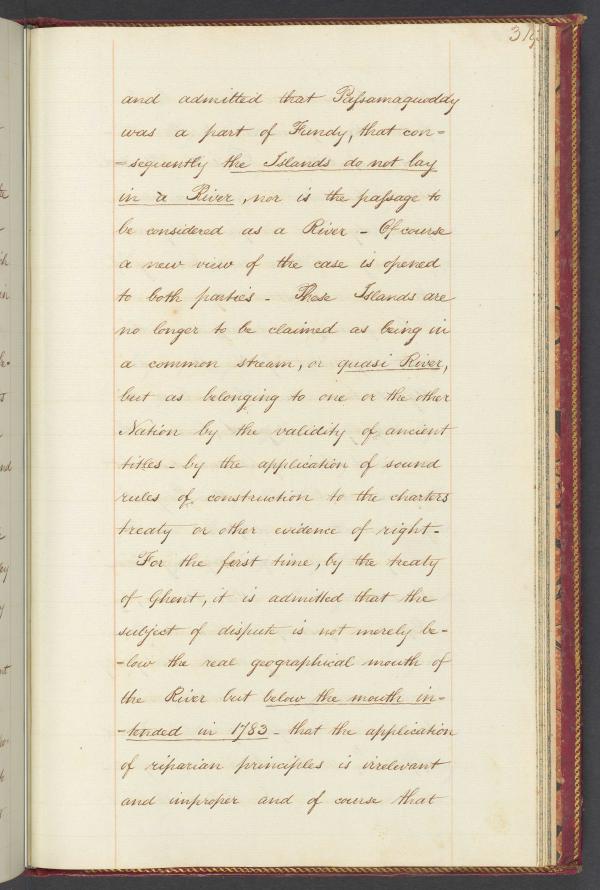 and admitted that Passamaquoddy
was a part of Fundy, that con=
=sequently the Islands do not lay
in a River, nor is the passage to
be considered as a River - Of course
a new view of the case is opened
to both parties - These Islands are
no longer to be claimed as being in
a common stream, or quasi River,
but as belonging to one or the other
Nation by the validity of ancient
titles - by the application of sound
rules of construction to the charters
treaty or other evidence of right -
For the first time, by the treaty
of Ghent, it is admitted that the
subject of dispute is not merely be-
-low the real geographical mouth of
the River but below the mouth in-
-tended in 1783 - that the application
of riparian principles is irrelevant
and improper and of course that